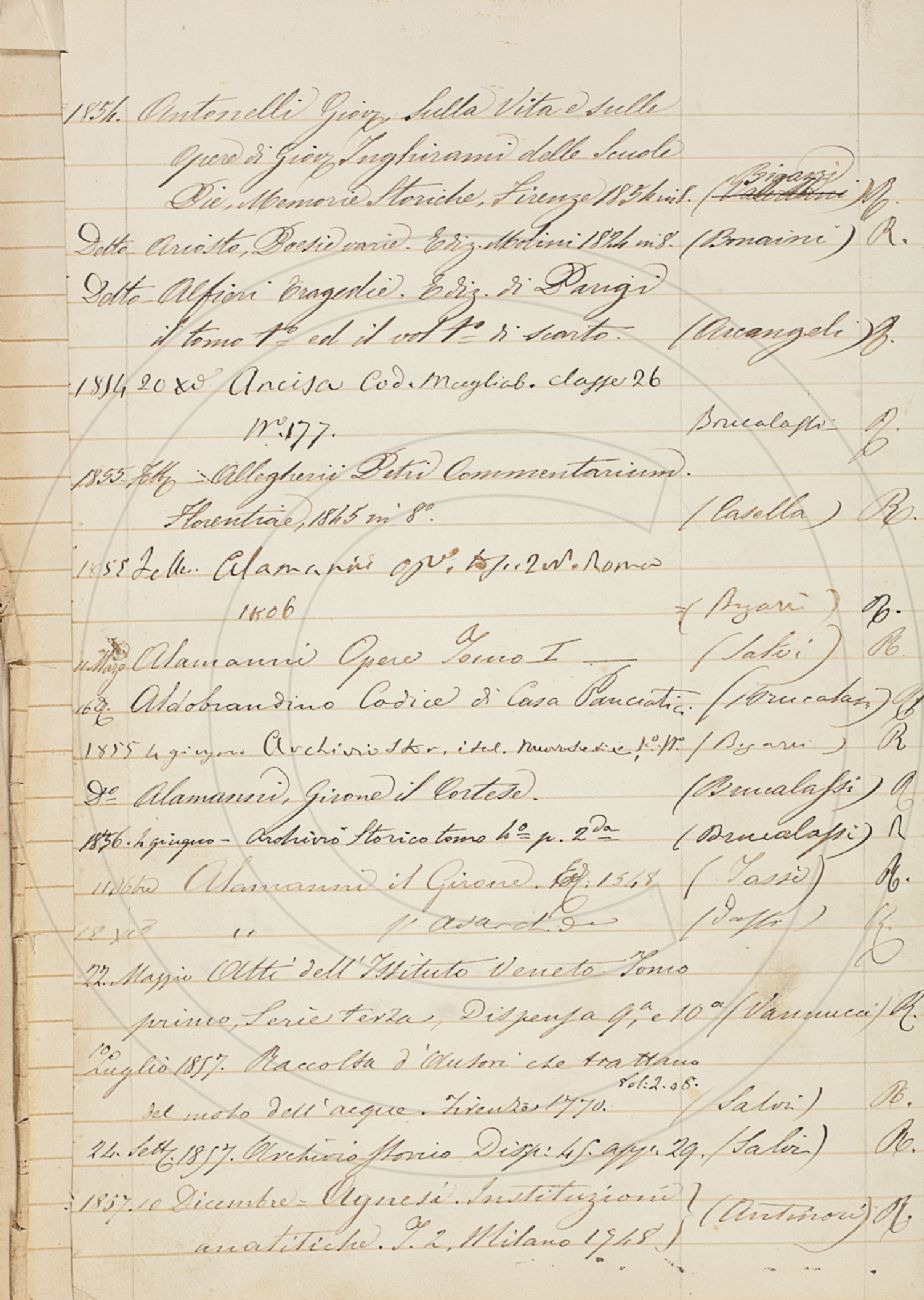 1854. Antonelli Giov., Sulla Vita e sulle
Opere di Giov. Inghirami delle Scuole
Bigazzi
Pie, Memorie Storiche, Firenze 1854 in 8. ( ) R.
Detto Ariosto, Poesie varie. Ediz. Molini 1824 in 8. (Bonaini) R.
Detto Alfieri Tragedie. Ediz. di Parigi
il tomo 1º ed il vol 1º di scarto. (Arcangeli) R.
1854 20 Xe Ancisa Cod. Magliab. classe 26
Nº. 177. Brucalassi R.
1855 = Allegherii Petri Commentarium.
Florentiae, 1845 in 8º. (Casella) R.
1855 Alamanni Roma
1806 =( Bigazzi ) R.
11 Marzo Alamanni Opere Tomo I — (Salvi) R
16 Aldobrandino Codice di Casa Panciatici. (Brucalassi) R
1855 4 giugno Archivio Stor. ital. nuova serie, (Bigazzi) R
Dº Alamanni, Girone il Cortese. (Brucalassi) R
1856. 4 giugno - Archivio Storico tomo 4º p. 2da (Brucalassi) R
11 Alamanni il Girone. Ed. 1548 (Tassi) R.
18 Xe " l'Avarchide (Tassi) R.
22. Maggio Atti dell'Istituto Veneto Tomo
primo, Serie terza, Dispensa 9a, e 10a (Vannucci) R.
10
Luglio 1857. Raccolta d'Autori che trattano
Vol: 2. o 8.
del moto dell'acque. Firenze 1770. (Salvi) R.
24. Sett. 1857. Archivio storico Disp: 45. app: 29. (Salvi) R.
1857. 10 Dicembre = Agnesi. Instituzioni }
analitiche. T. 2, Milano 1748 } (Antinori) R.